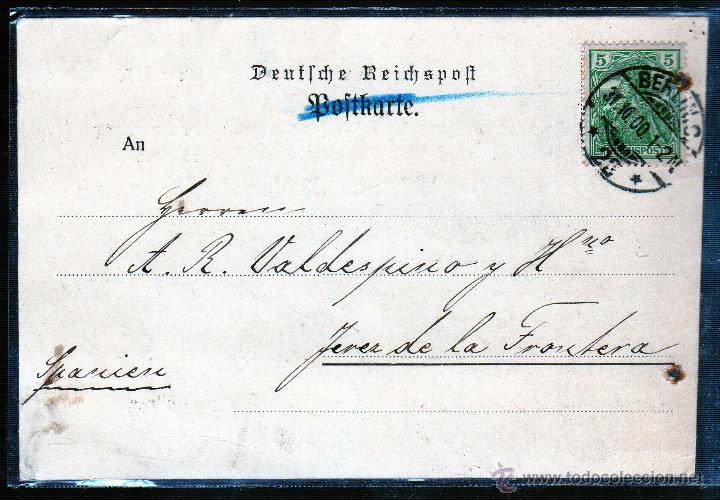 Deutsche Reichspost
Postkarte.
An
5 5
REICHSPOST
BERLIN C
1-2N
Herren
A. R. Valdespino y Hno
Jerez de la Frontera
Spanien
todocoleccion
www.todocoleccion.net